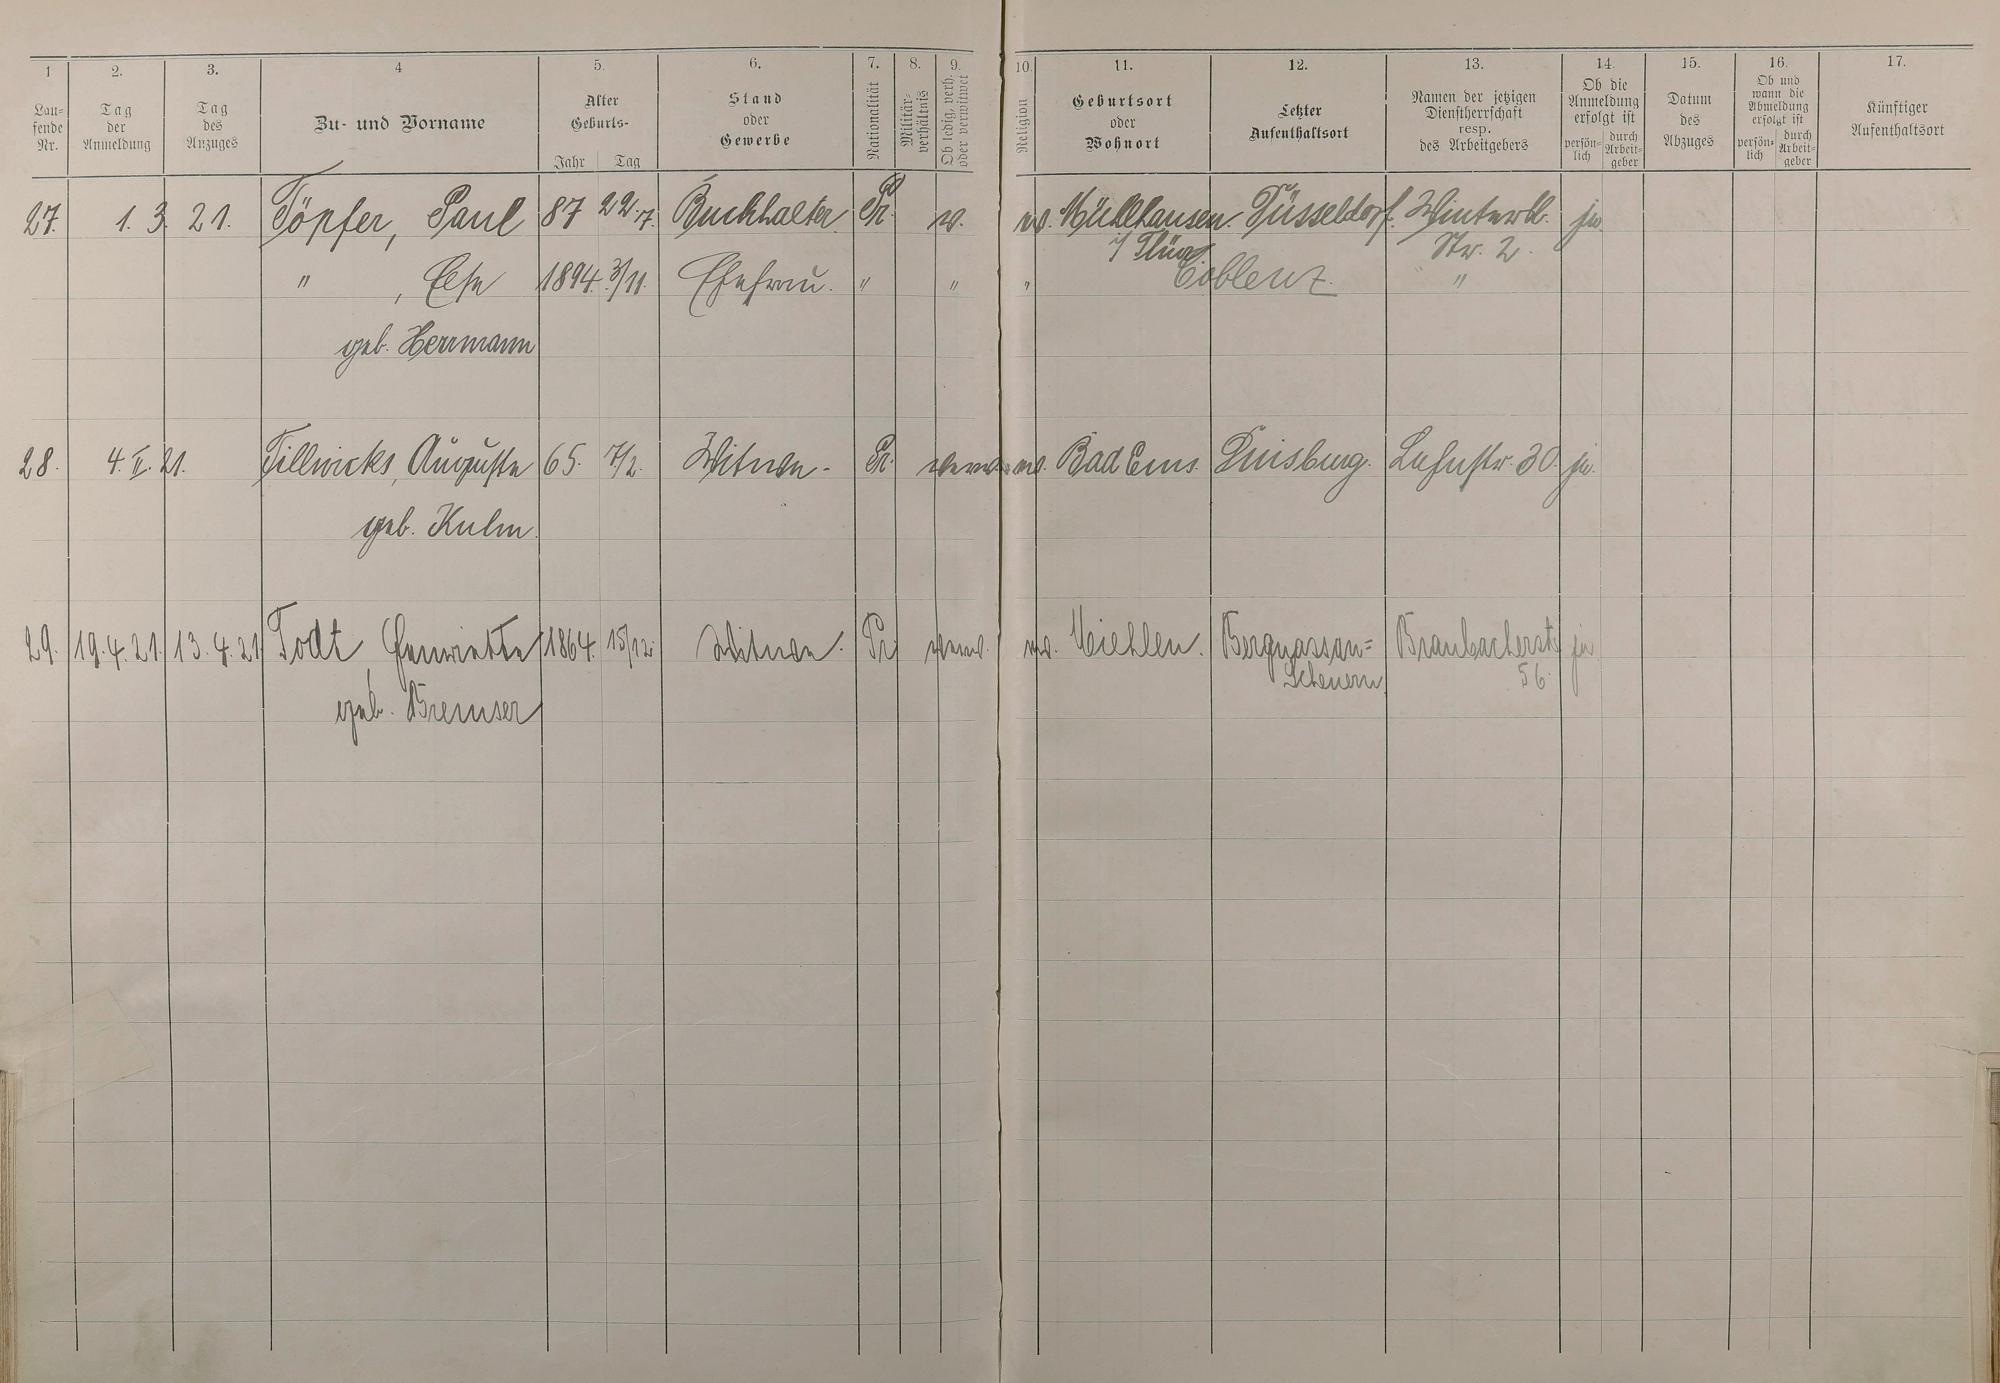 1 2. 3. 4 5. 6. 7. 8. 9. 10. 11. 12. 13. 14. 15. 16. 17.
Lau-fende Nr. Tag der Anmeldung Tag des Anzuges Zu- und Vorname Alter Geburts- Jahr Tag Stand oder Gewerbe Nationalität Militär-verhältnis Ob ledig, verh. oder verwitwet Religion Geburtsort oder Wohnort Letzter Aufenthaltsort Namen der jetzigen Dienstherrschaft resp. des Arbeitgebers Ob die Anmeldung erfolgt ist persön-lich durch Arbeit-geber Datum des Abzuges Ob und wann die Abmeldung erfolgt ist persön-lich durch Arbeit-geber Künftiger Aufenthaltsort
27. 1. 3. 21. Töpfer, Paul 87 22.7. Buchhalter Pr. v. ev. Mühlhausen. Düsseldorf. ja
Str. 2.
" , Else 1894. 3/11. Ehefrau. " " " Coblenz. "
geb. Herrmann
28. 4. II. 21. Tillwicks, Auguste 65. 7/2. Witwe. Pr. verw. ev. Bad Ems. Duisburg. Lahnstr. 30. ja.
geb. Kulm.
29. 19. 4. 21. 13. 4. 21 Todt, Henriette 1864. 15/12. Witwe. Pr verw. ev. Miehlen. Bergnassau= Braubacherstr ja
Scheuern. 56.
geb. Bremser